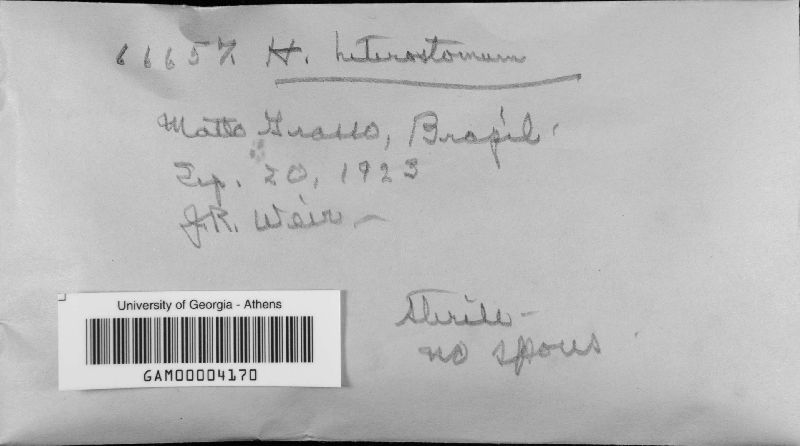 66657 H. heterostomum
Matto Grosso, Brazil.
Sep. 20, 1923
J.R. Weir
University of Georgia - Athens
GAM00004170
Sterile -
no spores